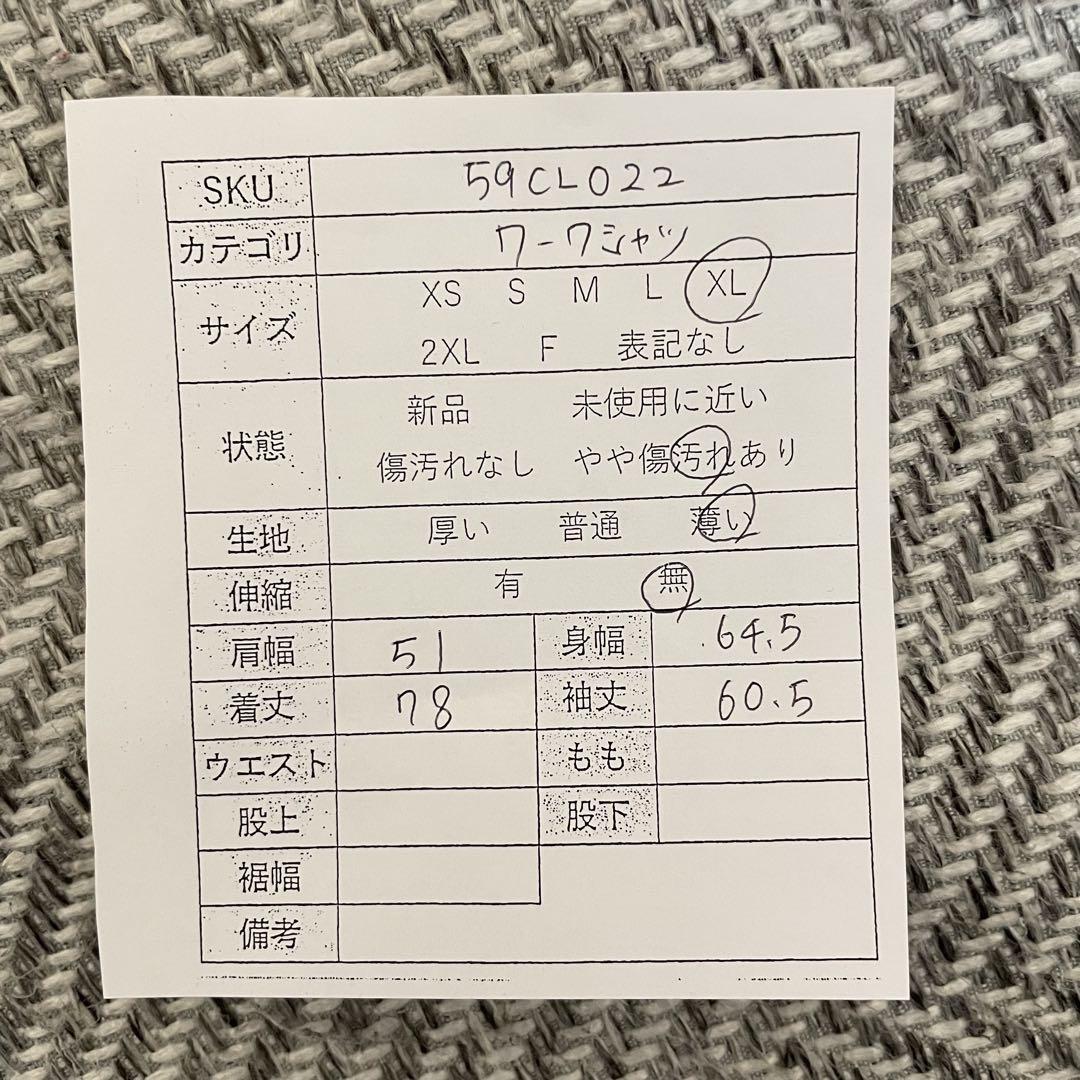 SKU 59CL022
カテゴリ ワークシャツ
サイズ XS S M L XL
2XL F 表記なし
状態 新品 未使用に近い
傷汚れなし やや傷汚れあり
生地 厚い 普通 薄い
伸縮 有 無
肩幅 51 身幅 64.5
着丈 78 袖丈 60.5
ウエスト もも
股上 股下
裾幅
備考